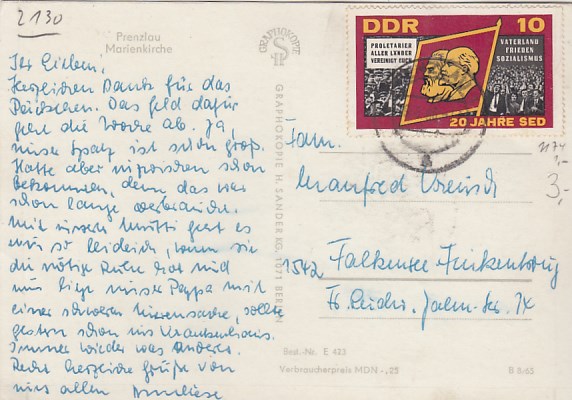 2130
Prenzlau
Marienkirche
Ihr Lieben,
Herzlichen Dank für das
Päckchen. Das Geld dafür
geht die Woche ab. Ja,
unser Spatz ist schon groß.
Hatte aber inzwischen schon
bekommen, denn das war
schon lange verbraucht.
Mit unserer Mutti geht es
nur so leidlich, wenn sie
die nötige Ruhe hat und
nun liegt unser Pappa mit
einer schweren Nierensache, sollte
gestern schon ins Krankenhaus.
Immer wieder was anderes.
Recht herzliche Grüße von
uns allen Anneliese
GRAPHOKOPIE
GRAPHOKOPIE H. SANDER KG, 1071 BERLIN
DDR 10
PROLETARIER
ALLER LÄNDER
VEREINIGT EUCH
VATERLAND
FRIEDEN
SOZIALISMUS
20 JAHRE SED
3,-
Fam.
Manfred
1542 Falkensee Finkenkrug
Fr. Ludw. Jahn-Str.
Best.-Nr. E 423
Verbraucherpreis MDN -,25
B 8/65